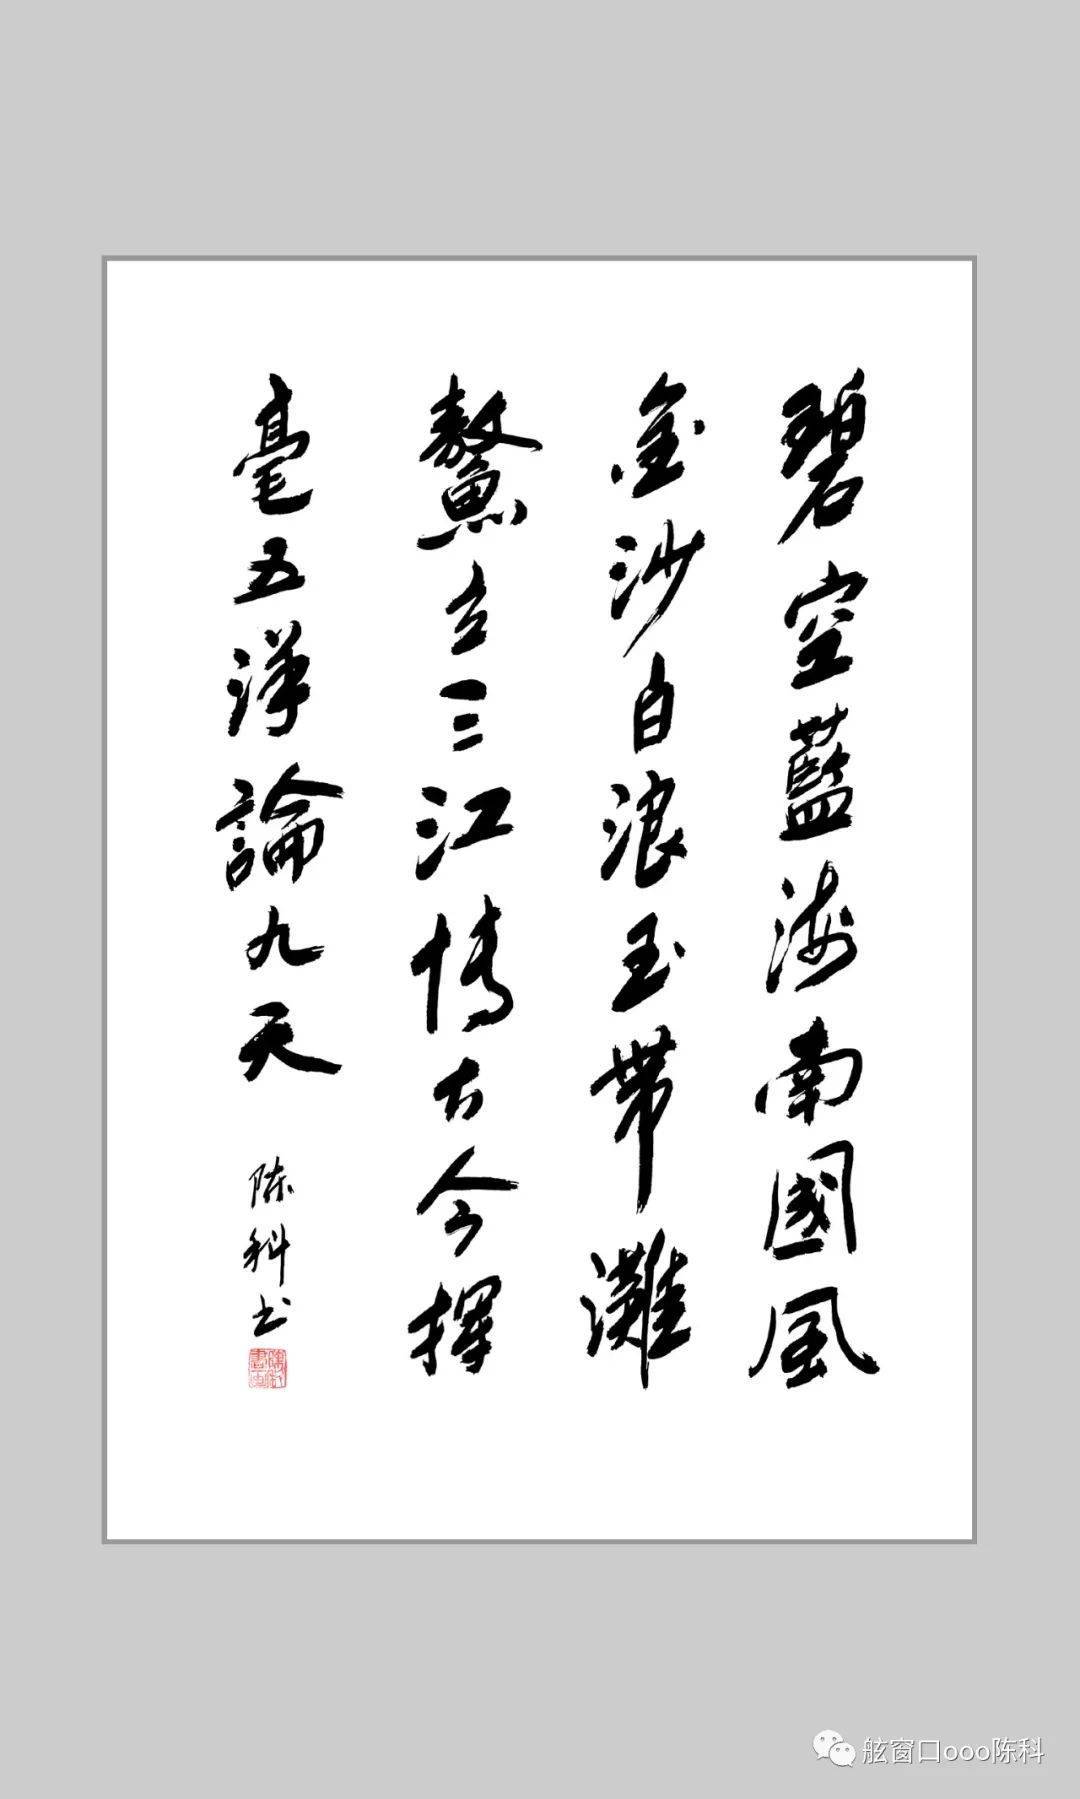 碧空藍海南國風
金沙白浪玉带灘
鰲立三江博古今揮
毫五洋論九天
陈科书
舷窗口ooo陈科